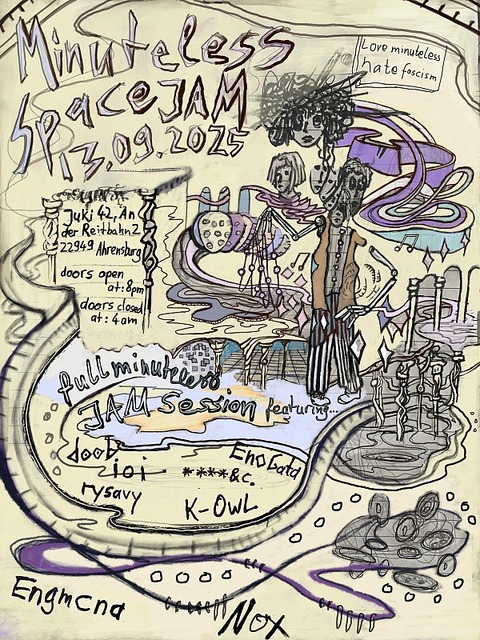 Minuteless
SpaceJAM
13.09.2025
Love minuteless
hate fascism
Juki 42, An
der Reitbahn 2
22949 Ahrensburg
doors open
at: 8pm
doors closed
at: 4am
fullminuteless
JAM Session featuring...
doob
ioi
EnoGata
rysavy
****&c.
K-OWL
Engmcna
Nox